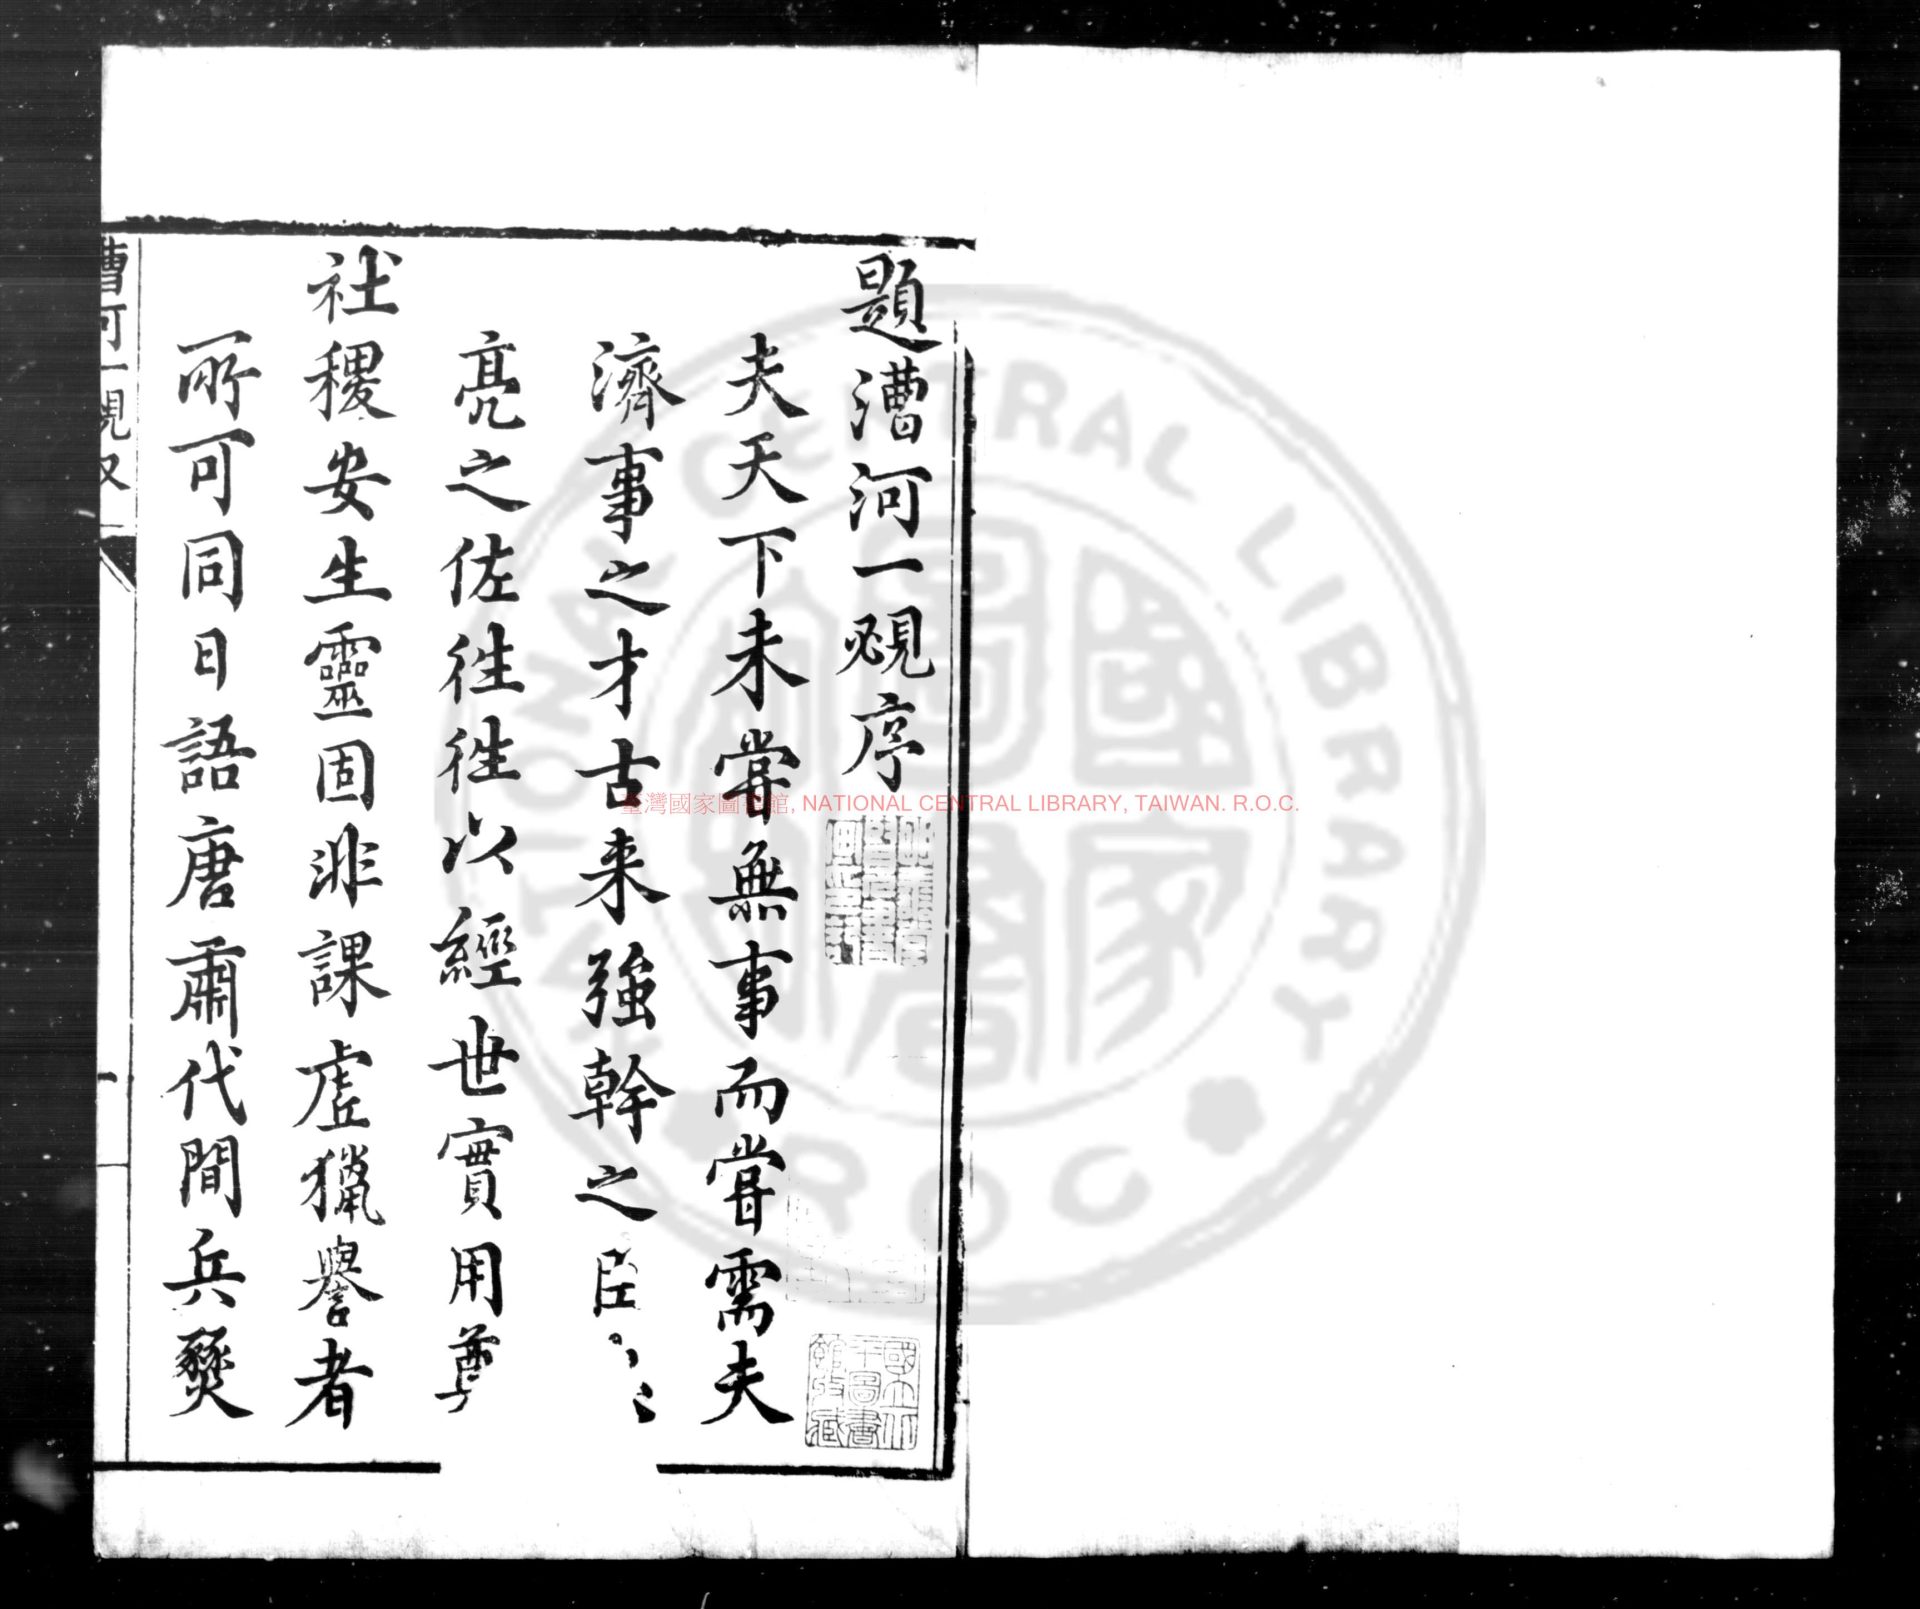 題漕河一覕序
夫天下未嘗無事而嘗需夫
濟事之才古来強幹之臣
亮之佐徃徃以經世實用尊
社稷安生靈固非課虛獵譽者
所可同日語唐肅代間兵燹
漕河一覕又
一
國立北
平圖書
館收藏
臺灣國家圖書館, NATIONAL CENTRAL LIBRARY, TAIWAN. R.O.C.
NATIONAL CENTRAL LIBRARY
ROC
國家圖書